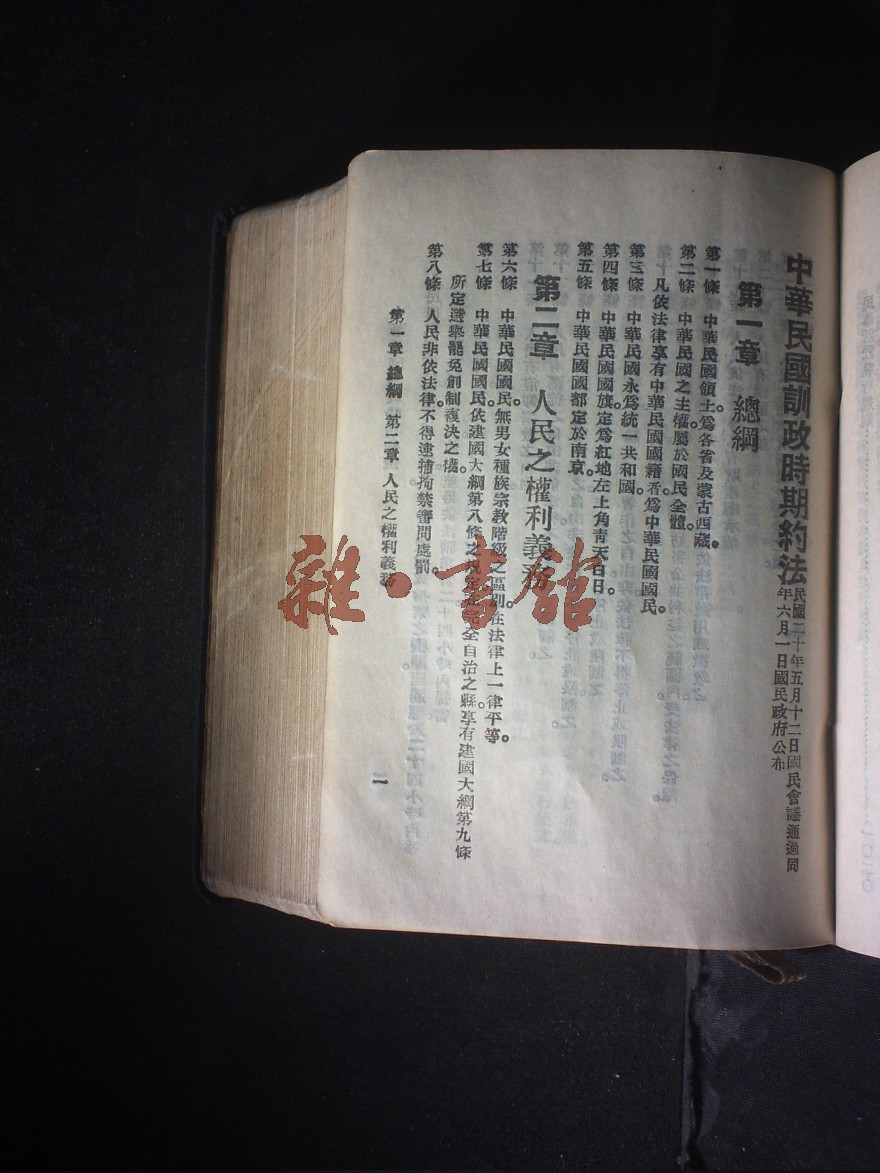 中華民國訓政時期約法
民國二十年五月十二日國民會議通過同
年六月一日國民政府公布
第一章　總綱
第一條　中華民國領土爲各省及蒙古西藏。
第二條　中華民國之主權屬於國民全體。
凡依法律享有中華民國國籍者爲中華民國國民。
第三條　中華民國永爲統一共和國。
第四條　中華民國國旗定爲紅地左上角靑天白日。
第五條　中華民國國都定於南京。
第二章　人民之權利義務
第六條　中華民國國民。無男女種族宗教階級之區別。在法律上一律平等。
第七條　中華民國國民依建國大綱第八條之規定。在完全自治之縣。享有建國大綱第九條
所定選舉罷免創制複決之權。
第八條　人民非依法律。不得逮捕拘禁審問處罰。
第一章　總綱　第二章　人民之權利義務
一
雜·書館